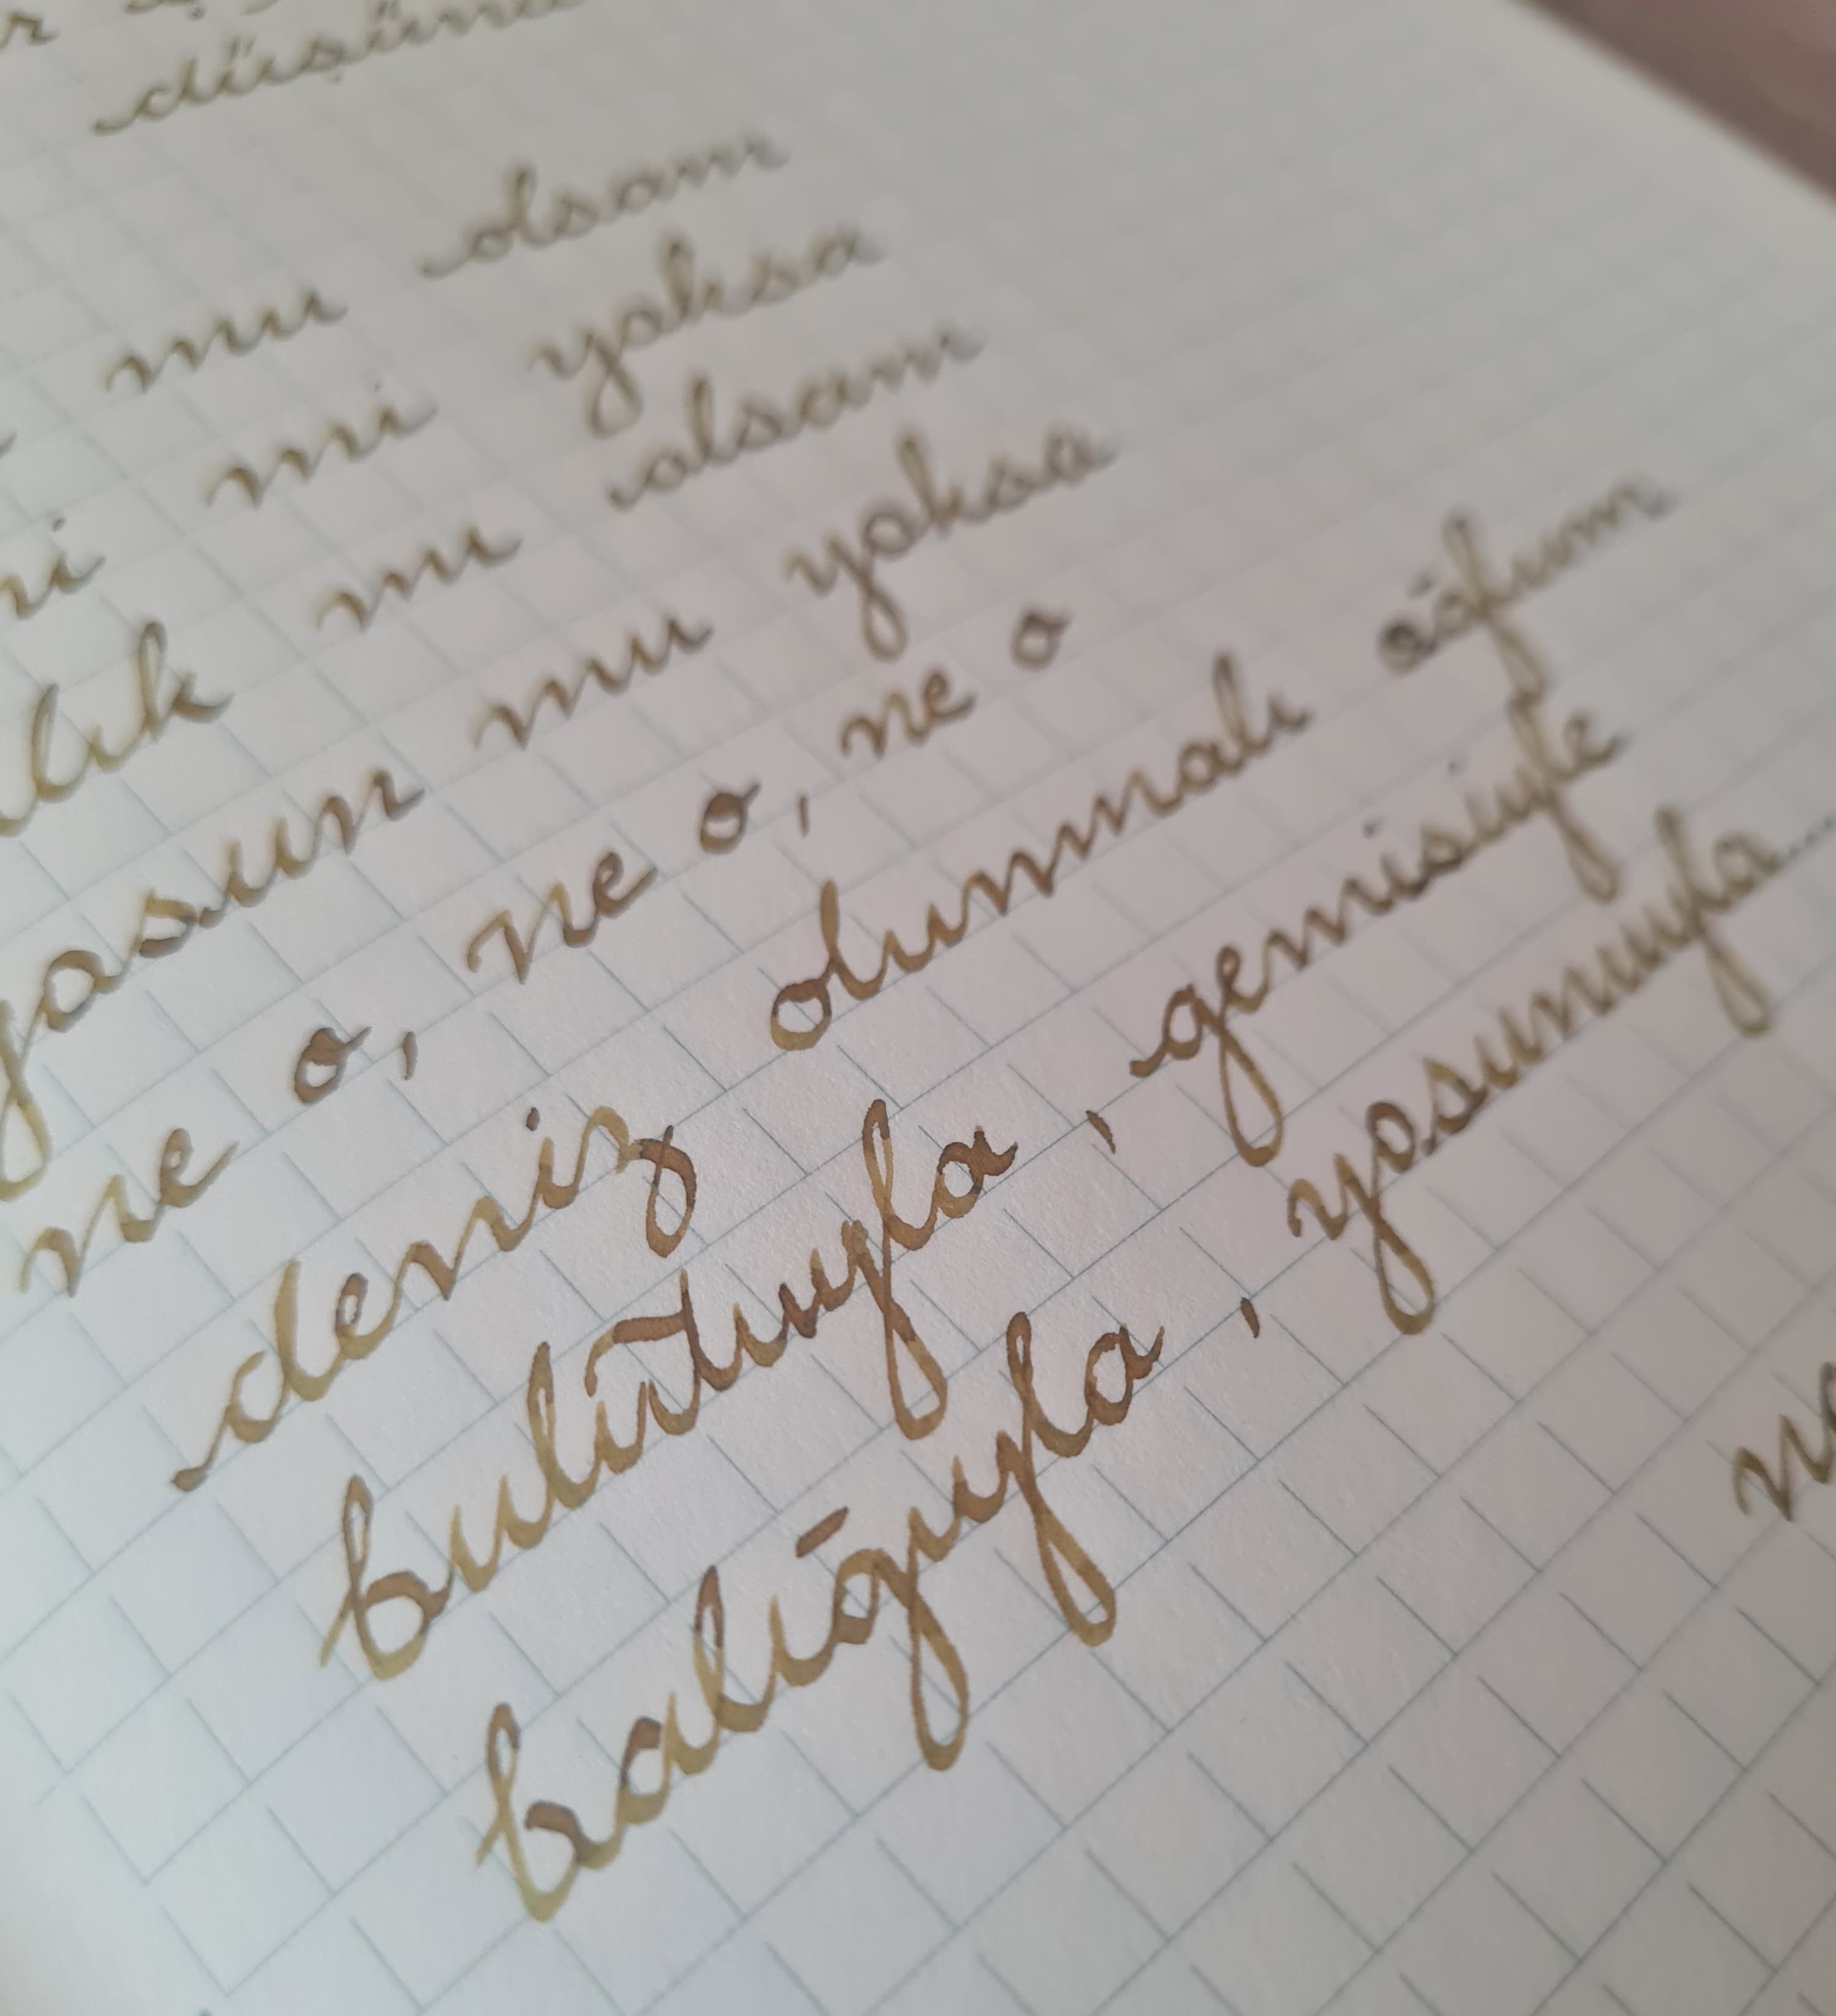 düşünü
mu olsam
mi yoksa
mı olsam
yosun mu yoksa
ne o, ne o, ne o
deniz olunmalı oğlum
bulutuyla, gemisiyle
balığıyla, yosunuyla...